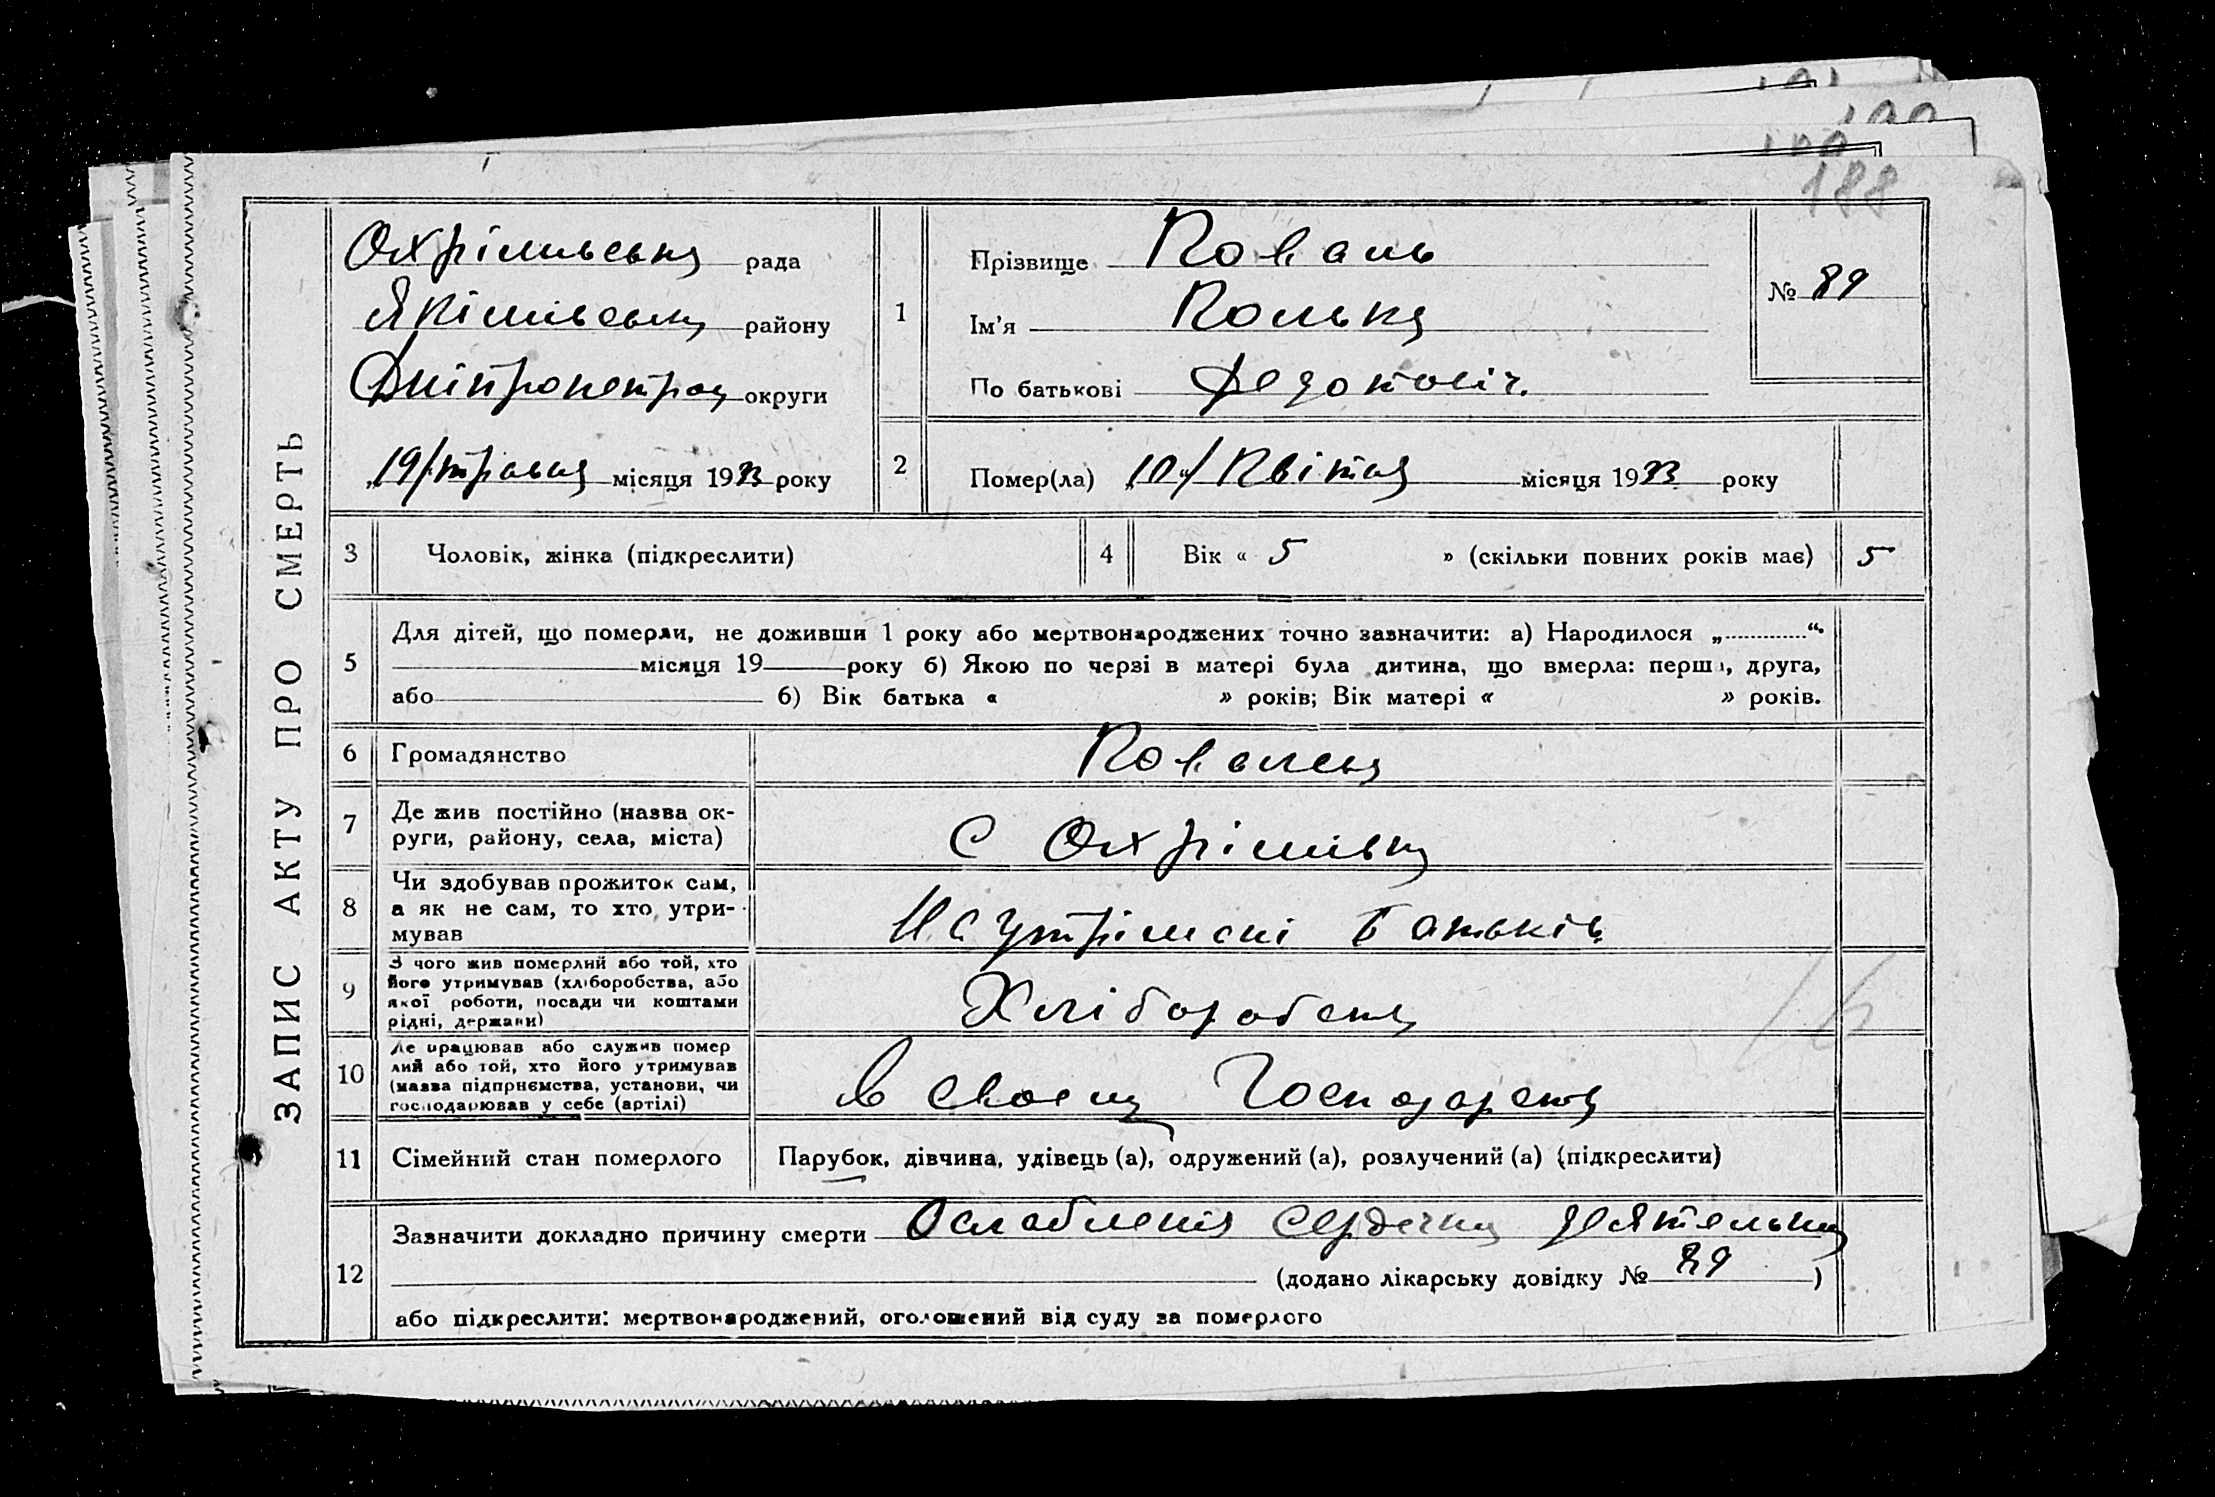 188
ЗАПИС АКТУ ПРО СМЕРТЬ
Охрімівська рада
Якімівська району
Дніпропетров округи
„19/травня місяця 1933 року
1
Прізвище Коваль
Ім'я Колька
По батькові
№ 89
2
Помер(ла) „10"/ Квітня місяця 1933 року
3 Чоловік, жінка (підкреслити)
4 Вік « 5 » (скільки повних років має) 5
5
Для дітей, що померли, не доживши 1 року або мертвонароджених точно зазначити: а) Народилося „............“
місяця 19 року б) Якою по черзі в матері була дитина, що вмерла: перша, друга,
або 6) Вік батька « » років; Вік матері « » років.
6 Громадянство
7
Де жив постійно (назва ок-
руги, району, села, міста)
с Охрімівка
8
Чи здобував прожиток сам,
а як не сам, то хто утри-
мував
На утрімані батьків
9
З чого жив померлий або той, хто
його утримував (хліборобства, або
якої роботи, посади чи коштами
рідні, держави)
10
Де працював або служив помер
лий або той, хто його утримував
(назва підприємства, установи, чи
господарював у себе (артілі)
в своему
11 Сімейний стан померлого
Парубок, дівчина, удівець (а), одружений (а), розлучений (а) (підкреслити)
12
Зазначити докладно причину смерти Ослабления сердечну
(додано лікарську довідку № 89 )
або підкреслити: мертвонароджений, оголошений від суду за померлого